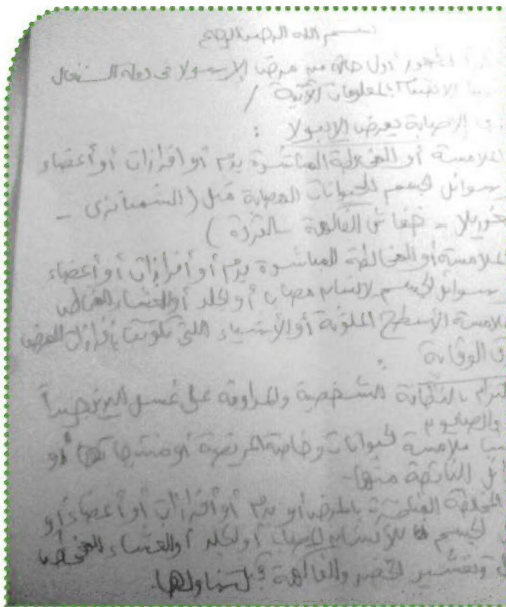 بسم الله الرحمن الرحيم
لظهور أول حالة من مرض الإيبولا في دولة السنغال
بالمعلومات الآتية /
الإصابة بمرض الإيبولا :
الملامسة أو المخالطة المباشرة بدم أو افرازات أو أعضاء
سوائل لجسم الحيوانات المصابة مثل ( الشمبانزي -
غوريلا - خفاش الفاكهة - القردة )
الملامسة أو المخالطة المباشرة بدم أو أفرازات أو أعضاء
سوائل لجسم لإنسان مصاب أو الجلد أو الغشاء المخاطي
ملامسة الأسطح الملوثة أو الأشياء التي تلوثت بإفرازات المرضى
الوقاية :
بالنظافة الشخصية والمداومة على غسل اليدين جيداً
والصابون
ملامسة الحيوانات وخاصة المريضة أو منتجاتها أو
الناتجة منها.
المخالطة المباشرة بالمرضى أو بدم أو أفرازات أو أعضاء أو
لجسم للإنسان المصاب أو الجلد أو الغشاء المخاطي
وتقشير الخضر والفاكهة قبل تناولها.